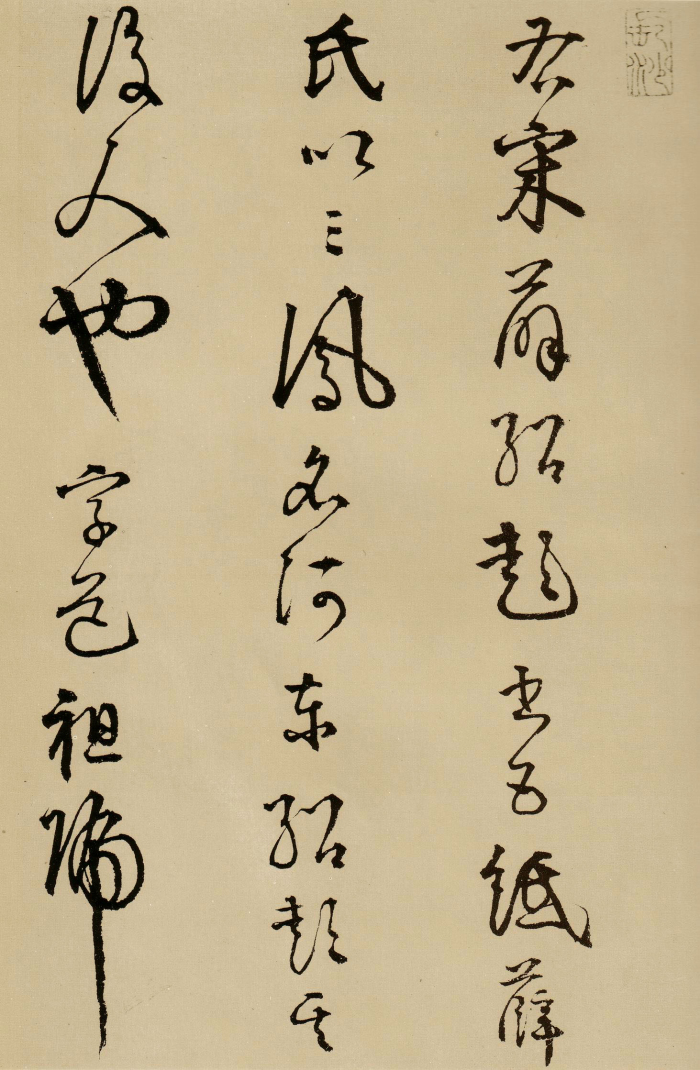 右宋薛紹彭書五紙薛
氏以三鳳名河東紹彭其
後人也字道祖